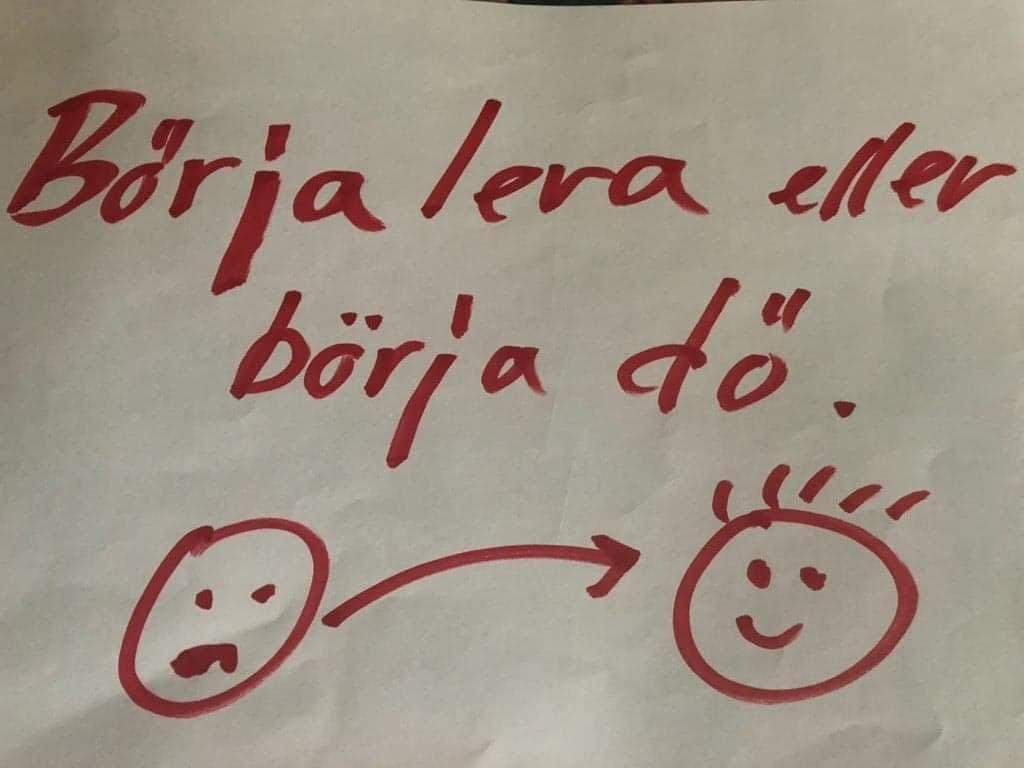 Börja leva eller
börja dö.